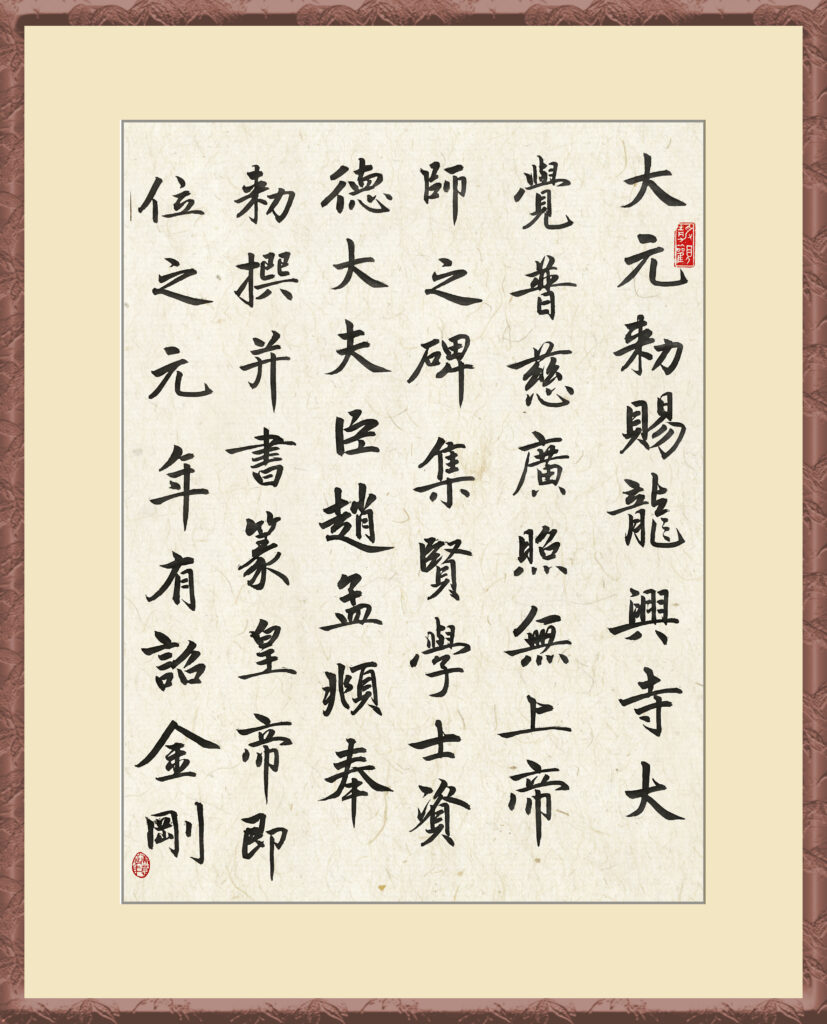 大元勅賜龍興寺大
覺普慈廣照無上帝
師之碑集賢學士資
德大夫臣趙孟頫奉
勅撰并書篆皇帝即
位之元年有詔金剛